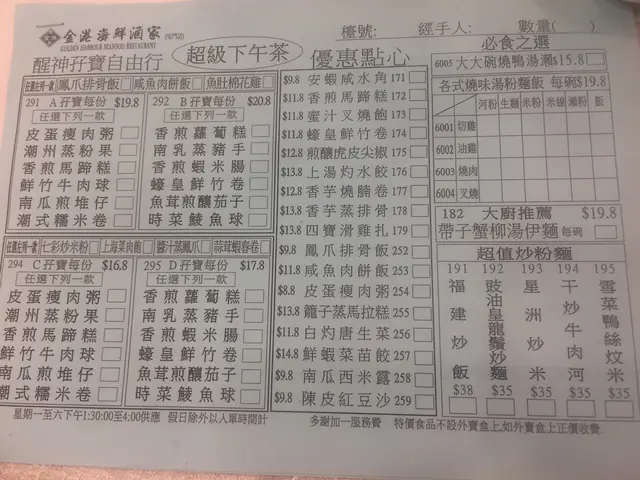 金港海鮮酒家
GOLDEN HARBOUR SEAFOOD RESTAURANT
檯號:
經手人:
數量( )
醒神孖寶自由行
超級下午茶
優惠點心
任選下列一款
鳳爪排骨飯
咸魚肉餅飯
魚肚棉花雞
291 A孖寶每份 $19.8
任選下列一款
皮蛋瘦肉粥
潮州蒸粉果
香煎馬蹄糕
鮮竹牛肉球
南瓜煎堆仔
潮式糯米卷
292 B孖寶每份 $20.8
任選下列一款
香煎蘿蔔糕
南乳蒸豬手
香煎蝦米腸
蠔皇鮮竹卷
魚茸煎釀茄子
時菜鯪魚球
七彩炒米粉
上海菜肉飽
醬汁蒸鳳爪
蒜茸蝦春卷
294 C孖寶每份 $16.8
任選下列一款
皮蛋瘦肉粥
潮州蒸粉果
香煎馬蹄糕
鮮竹牛肉球
南瓜煎堆仔
潮式糯米卷
295 D孖寶每份 $17.8
任選下列一款
香煎蘿蔔糕
南乳蒸豬手
香煎蝦米腸
蠔皇鮮竹卷
魚茸煎釀茄子
時菜鯪魚球
$9.8 安蝦咸水角 171
$11.8 香煎馬蹄糕 172
$11.8 蜜汁叉燒飽 173
$11.8 蠔皇鮮竹卷 174
$12.8 煎釀虎皮尖椒 175
$13.8 上湯灼水餃 176
$12.8 香芋燒腩卷 177
$13.8 香芋蒸排骨 178
$13.8 四寶滑雞扎 179
$9.8 鳳爪排骨飯 252
$11.8 咸魚肉餅飯 253
$8.8 皮蛋瘦肉粥 254
$13.8 籠子蒸馬拉糕 255
$11.8 白灼唐生菜 256
$14.8 鮮蝦菜苗餃 257
$9.8 南瓜西米露 258
$9.8 陳皮紅豆沙 259
必食之選
6005 大大碗燒鴨湯瀨 $15.8
各式燒味湯粉麵飯 每碗$19.8
河粉 生麵 米粉 米線 瀨粉 飯
6001 切雞
6002 油雞
6003 燒肉
6004 叉燒
182 大廚推薦 $19.8
帶子蟹柳湯伊麵 每碗
超值炒粉麵
191 福建炒飯 $38
192 豉油皇龍鬚炒麵 $35
193 星洲炒米 $35
194 干炒牛肉河 $35
195 雪菜鴨絲炆米 $35
星期一至六下午1:30:00至4:00供應 假日除外以入單時間計
多謝加一服務費
特價食品不設外賣盒上,如外賣盒上正價收費